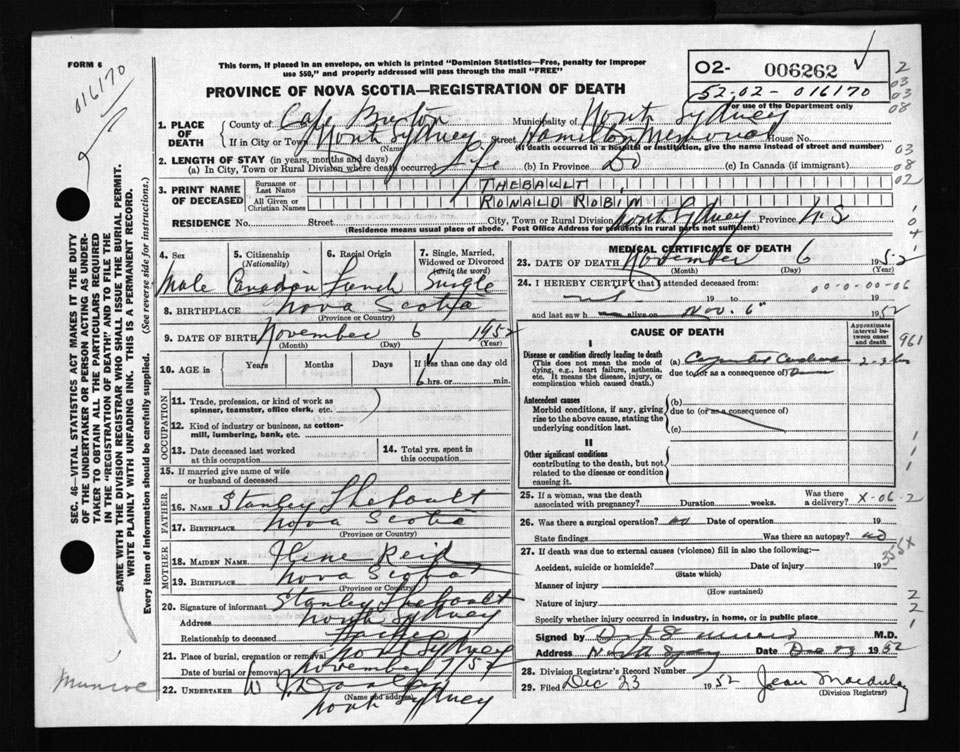 FORM 6
016170
This form, if placed in an envelope, on which is printed "Dominion Statistics—Free, penalty for improper
use $50," and properly addressed will pass through the mail "FREE"
02- 006262
52-02-016170
For use of the Department only
PROVINCE OF NOVA SCOTIA—REGISTRATION OF DEATH
1. PLACE OF DEATH
County of Cape Breton Municipality of North Sydney
If in City or Town North Sydney Street Hamilton Memorial House No.
(Name) (If death occurred in a hospital or institution, give the name instead of street and number)
2. LENGTH OF STAY (in years, months and days)
(a) In City, Town or Rural Division where death occurred Life (b) In Province Do (c) In Canada (if immigrant)
3. PRINT NAME OF DECEASED
Surname or Last Name THEBAULT
All Given or Christian Names RONALD ROBIN
RESIDENCE No. Street City, Town or Rural Division North Sydney Province N S
(Residence means usual place of abode. Post Office Address for residents in rural parts not sufficient)
4. Sex Male
5. Citizenship (Nationality) Canadian
6. Racial Origin French
7. Single, Married, Widowed or Divorced (write the word) Single
8. BIRTHPLACE Nova Scotia
(Province or Country)
9. DATE OF BIRTH November 6 1952
(Month) (Day) (Year)
10. AGE in Years Months Days If less than one day old
6 hrs. or min.
OCCUPATION
11. Trade, profession, or kind of work as spinner, teamster, office clerk, etc.
12. Kind of industry or business, as cotton-mill, lumbering, bank, etc.
13. Date deceased last worked at this occupation
14. Total yrs. spent in this occupation
15. If married give name of wife or husband of deceased
FATHER
16. NAME Stanley Thebault
17. BIRTHPLACE Nova Scotia
(Province or Country)
MOTHER
18. MAIDEN NAME Reid
19. BIRTHPLACE Nova Scotia
(Province or Country)
20. Signature of informant Stanley Thebault
Address North Sydney
Relationship to deceased Father
21. Place of burial, cremation or removal North Sydney
Date of burial or removal November 7/52
22. UNDERTAKER
(Name and address)
North Sydney
Munroe
SEC. 46—VITAL STATISTICS ACT MAKES IT THE DUTY
OF THE UNDERTAKER OR PERSON ACTING AS UNDERTAKER
TO OBTAIN ALL THE PARTICULARS REQUIRED
IN THE "REGISTRATION OF DEATH" AND TO FILE THE
SAME WITH THE DIVISION REGISTRAR WHO SHALL ISSUE THE BURIAL PERMIT.
WRITE PLAINLY WITH UNFADING INK. THIS IS A PERMANENT RECORD.
Every item of information should be carefully supplied. (See reverse side for instructions.)
MEDICAL CERTIFICATE OF DEATH
23. DATE OF DEATH November 6 1952
(Month) (Day) (Year)
24. I HEREBY CERTIFY that I attended deceased from:
19 to 19
and last saw h alive on Nov. 6 1952
00-0-00-06
CAUSE OF DEATH
Approximate interval between onset and death
I
Disease or condition directly leading to death
(This does not mean the mode of dying, e.g., heart failure, asthenia, etc. It means the disease, injury, or complication which caused death.)
(a)
due to (or as a consequence of)
Antecedent causes
Morbid conditions, if any, giving rise to the above cause, stating the underlying condition last.
(b)
due to (or as a consequence of)
(c)
II
Other significant conditions
contributing to the death, but not related to the disease or condition causing it.
25. If a woman, was the death associated with pregnancy? Duration weeks. Was there a delivery? X-06-2
26. Was there a surgical operation? no Date of operation 19
State findings Was there an autopsy? no
27. If death was due to external causes (violence) fill in also the following:—
Accident, suicide or homicide? Date of injury 19
(State which)
Manner of injury
(How sustained)
Nature of injury
Specify whether injury occurred in industry, in home, or in public place
Signed by M.D.
Address North Sydney Date Dec 23 1952
28. Division Registrar's Record Number
29. Filed Dec 23 1952
(Division Registrar)
2
03
03
08
03
08
02
961